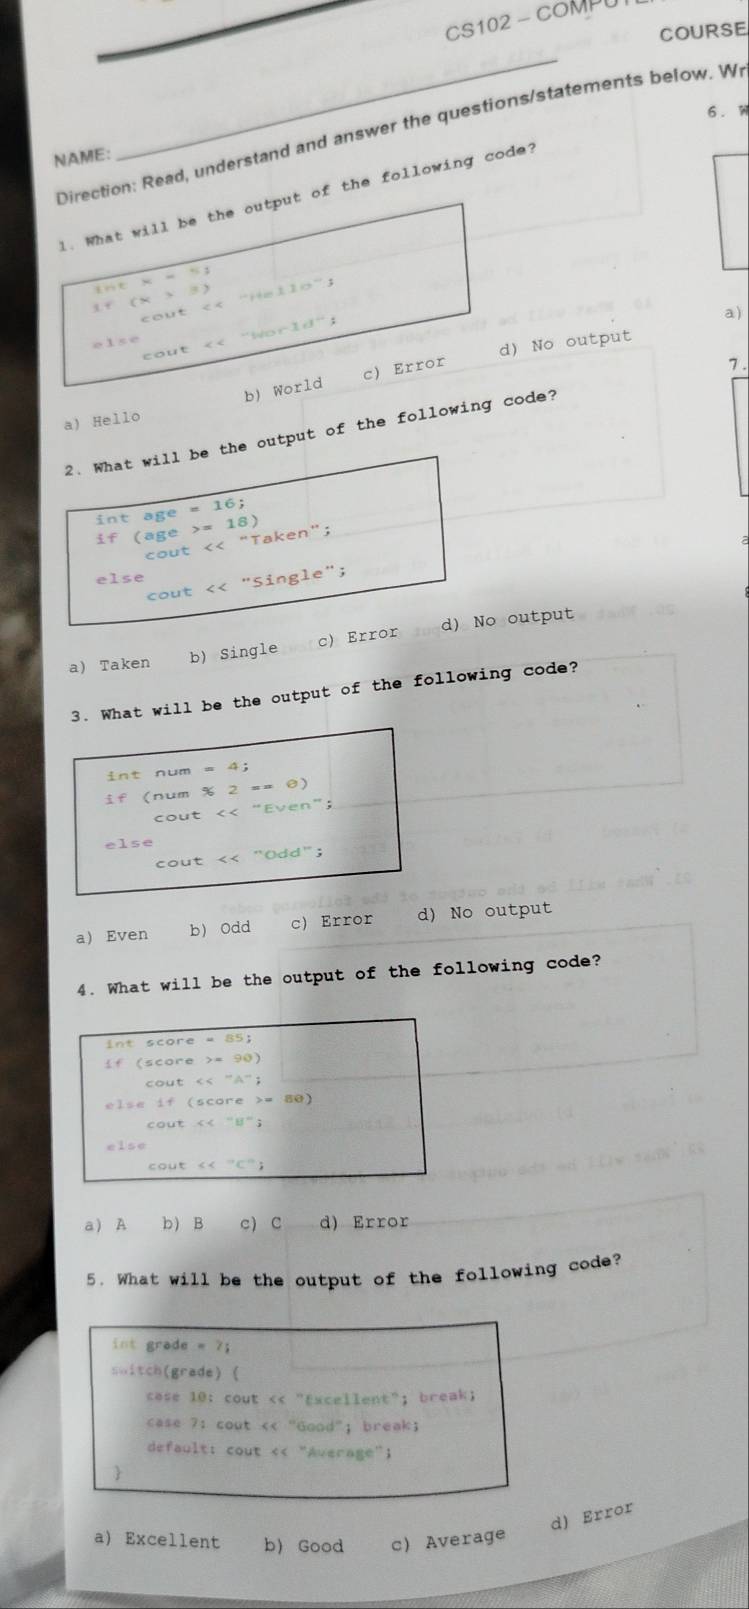 CS102 - COMPUT
COURSE
NAME:
Direction: Read, understand and answer the questions/statements below. Wr
1. What will be the output of the following code?
int x = 5;
if (x > 3)
cout << "Hello";
else
cout << "World";
a) Hello b) World c) Error d) No output
2. What will be the output of the following code?
int age = 16;
if (age >= 18)
cout << "Taken";
else
cout << "Single";
a) Taken b) Single c) Error d) No output
3. What will be the output of the following code?
int num = 4;
if (num % 2 == 0)
cout << "Even";
else
cout << "Odd";
a) Even b) Odd c) Error d) No output
4. What will be the output of the following code?
int score = 85;
if (score >= 90)
cout << "A";
else if (score >= 80)
cout << "B";
else
cout << "C";
a) A b) B c) C d) Error
5. What will be the output of the following code?
int grade = 7;
switch(grade) {
case 10: cout << "Excellent"; break;
case 7: cout << "Good"; break;
default: cout << "Average";
}
a) Excellent b) Good c) Average d) Error
6. W
a)
7.